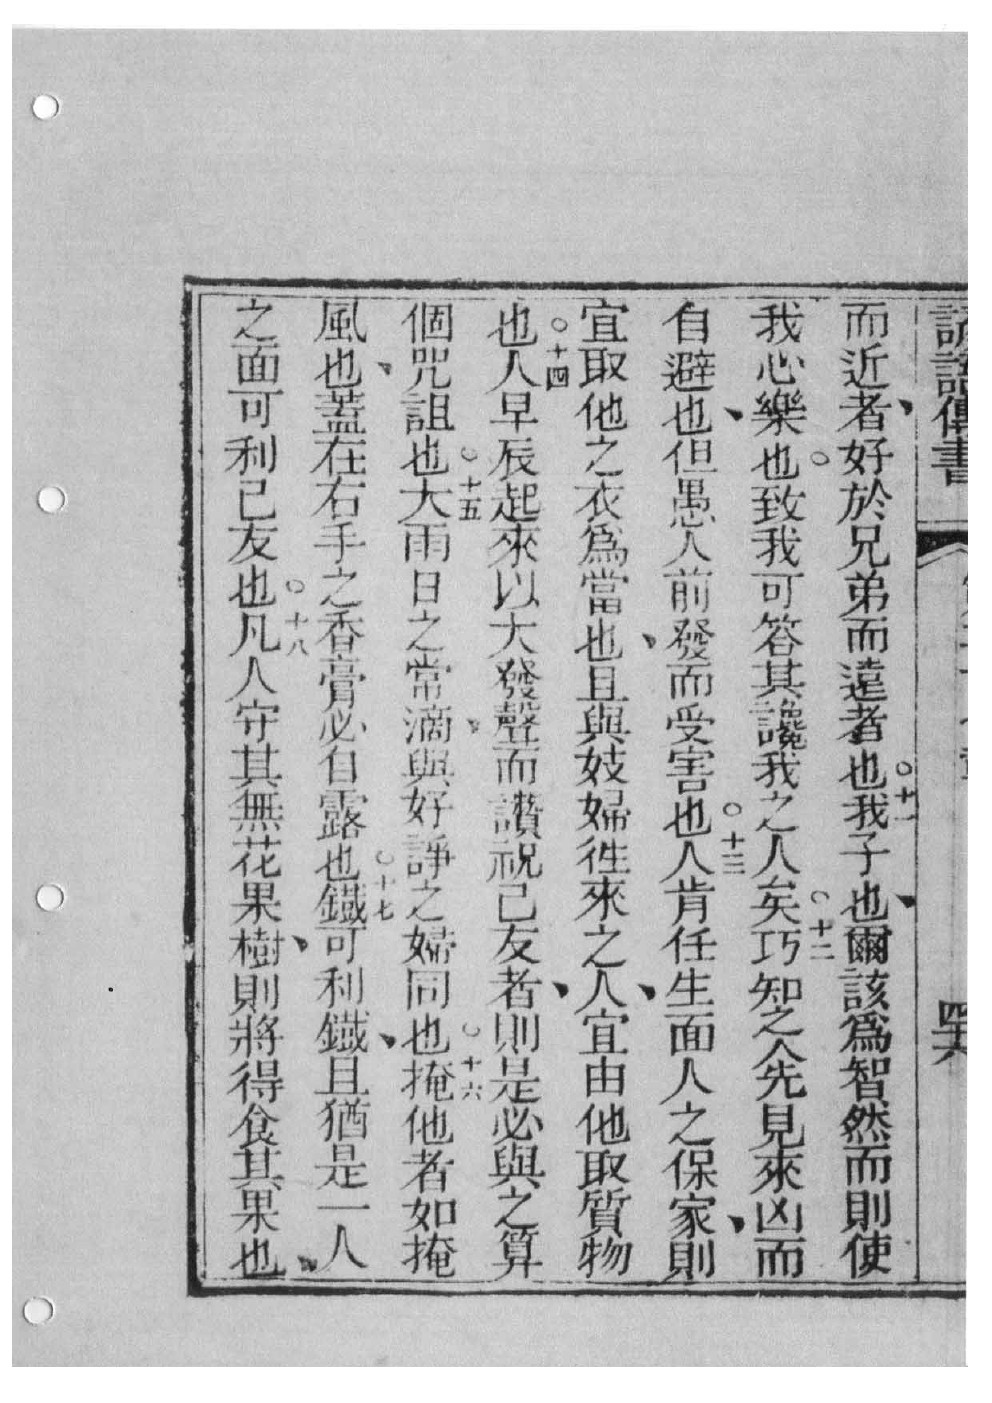 諺語傳書
四六
而近者好於兄弟而遠者也○十一我子也爾該爲智然而則使
我心樂也○致我可答其讒我之人矣○十二巧知之人先見來凶而
自避也但愚人前發而受害也○十三人肯任生面人之保家則
宜取他之衣爲當也且與妓婦徃來之人宜由他取質物
也○十四人早辰起來以大發聲而讚祝己友者則是必與之算
個咒詛也○十五大雨日之常滴與好諍之婦同也○十六掩他者如掩
風也蓋在右手之香膏必自露也○十七鐵可利鐵且猶是一人
之面可利己友也○十八凡人守其無花果樹則將得食其果也